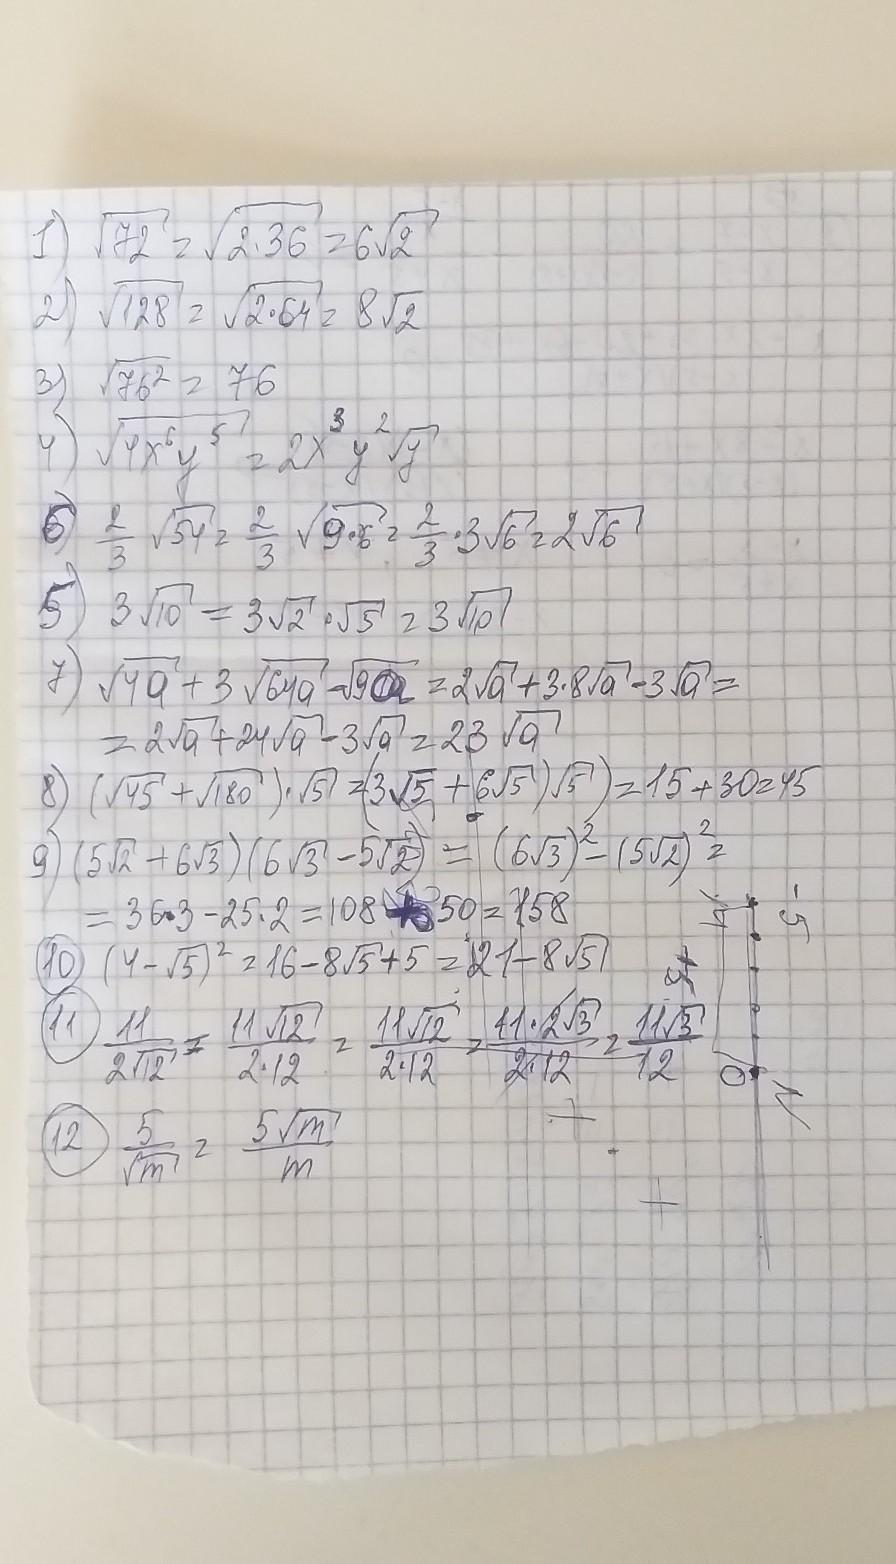 1) √72 = √2·36 = 6√2
2) √128 = √2·64 = 8√2
3) √76² = 76
4) √4x⁶y⁵ = 2x³y²√y
6) 2/3 √54 = 2/3 √9·6 = 2/3 · 3√6 = 2√6
5) 3√10 = 3√2 · √5 = 3√10
7) √4a + 3√64a - √9a = 2√a + 3·8√a - 3√a =
= 2√a + 24√a - 3√a = 23√a
8) (√45 + √180)·√5 = (3√5 + 6√5)√5) = 15 + 30 = 45
9) (5√2 + 6√3)(6√3 - 5√2) = (6√3)² - (5√2)² =
= 36·3 - 25·2 = 108 + 50 = 158
10) (4 - √5)² = 16 - 8√5 + 5 = 21 - 8√5
11) 11/2√12 = 11√12/2·12 = 11√12/2·12 = 11·2√3/2·12 = 11√3/12
12) 5/√m = 5√m/m
-5
0